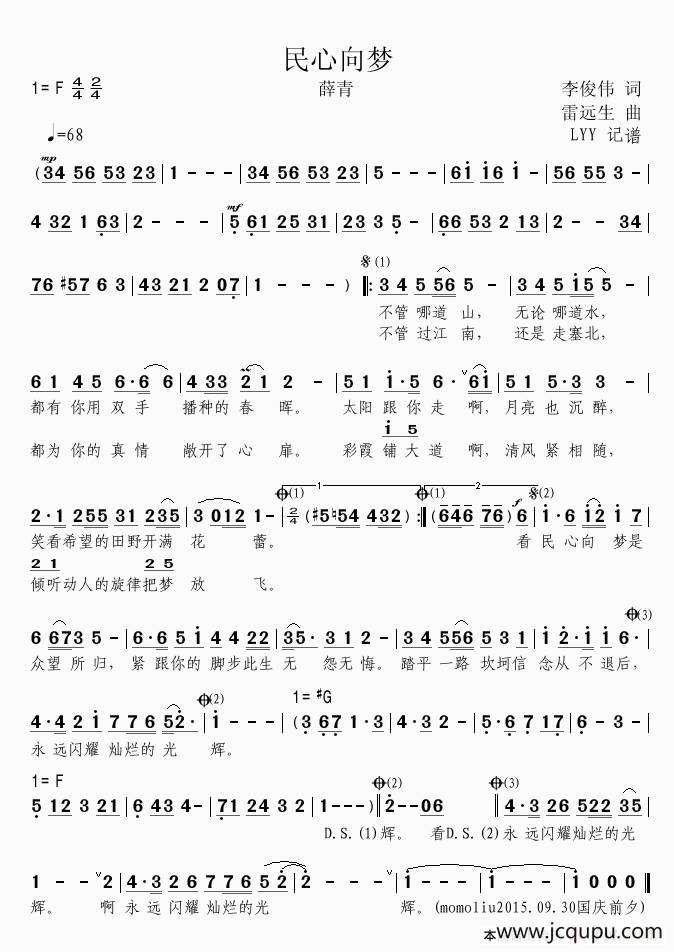 民心向梦
1= F 4/4 2/4 薛青 李俊伟 词
雷远生 曲
♩=68 LYY 记谱
mp
(34 56 53 23 | 1 - - - | 34 56 53 23 | 5 - - - | 61 16 1 - | 56 55 3 - |
mf
4 32 1 63 | 2 - - - | 5 61 25 31 | 23 3 5 - | 66 53 2 13 | 2 - - 34 |
𝄋(1)
76 #57 6 3 | 43 21 2 07 | 1 - - - ) ‖: 3 4 5 56 5 - | 3 4 5 15 5 - |
不管 哪道 山， 无论 哪道水，
不管 过江 南， 还是 走塞北，
6 1 4 5 6·6 6 | 4 33 21 2 - | 5 1 1·5 6· ∨ 61 | 5 1 5·3 3 - |
都有 你用 双手 播种的 春 晖。 太阳 跟你走 啊， 月亮 也 沉醉，
1 5
都为 你的 真情 敞开了 心 扉。 彩霞 铺大道 啊， 清风 紧 相随，
𝄌(1) 1 𝄌(1) 2 f 𝄋(2)
2·1 255 31 235 | 3 012 1 - | 2/4 (#5♮54 432) :‖ (646 76) 6 | 1·6 12 1 7 |
笑看希望的田野开满 花 蕾。 看 民 心向 梦是
2 1 2 5
倾听动人的旋律把梦 放 飞。
𝄌(3)
6 673 5 - | 6·6 5 1 4 4 22 | 35· 3 1 2 - | 3 4 556 5 1 | 1 2·1 6· |
众望 所归， 紧 跟你的 脚步此生 无 怨无悔。 踏平 一路 坎坷信 念从 不 退后，
𝄌(2) 1= #G
4·4 2 1 7 7 6 52· | 1 - - - | (3 67 1·3 | 4·3 2 - | 5·6 7 17 6 |
永 远闪耀 灿烂的 光 辉。
1= F 𝄌(2) 𝄌(3)
5 12 3 21 | 6 43 4 - | 71 24 3 2 | 1 - - - ) ‖ 2 - - 06 ‖ 4·3 26 522 35 |
D.S.(1) 辉。 看D.S.(2) 永 远闪耀灿烂的光
1 - - ∨ 2 | 4·3 2 6 7 7 6 52 2 | 1 - - ∨ 2 | 1 - - - | 1 - - - | 1 0 0 0 ‖
辉。 啊 永 远 闪耀 灿烂的光 辉。(momoliu2015.09.30国庆前夕)
本www.jcqupu.com